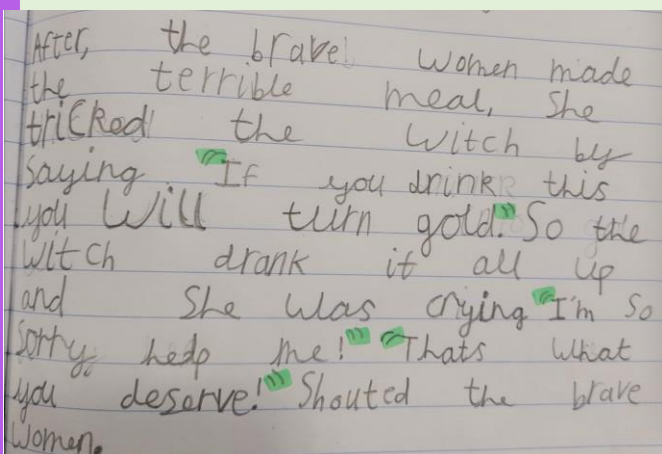 After, the brave women made
the terrible meal, She
tricked the Witch by
Saying "If you drink this
you Will turn gold." So the
Witch drank it all up
and She was crying "I'm so
Sorry, hedp me!" "Thats what
you deserve!" Shouted the brave
Women.